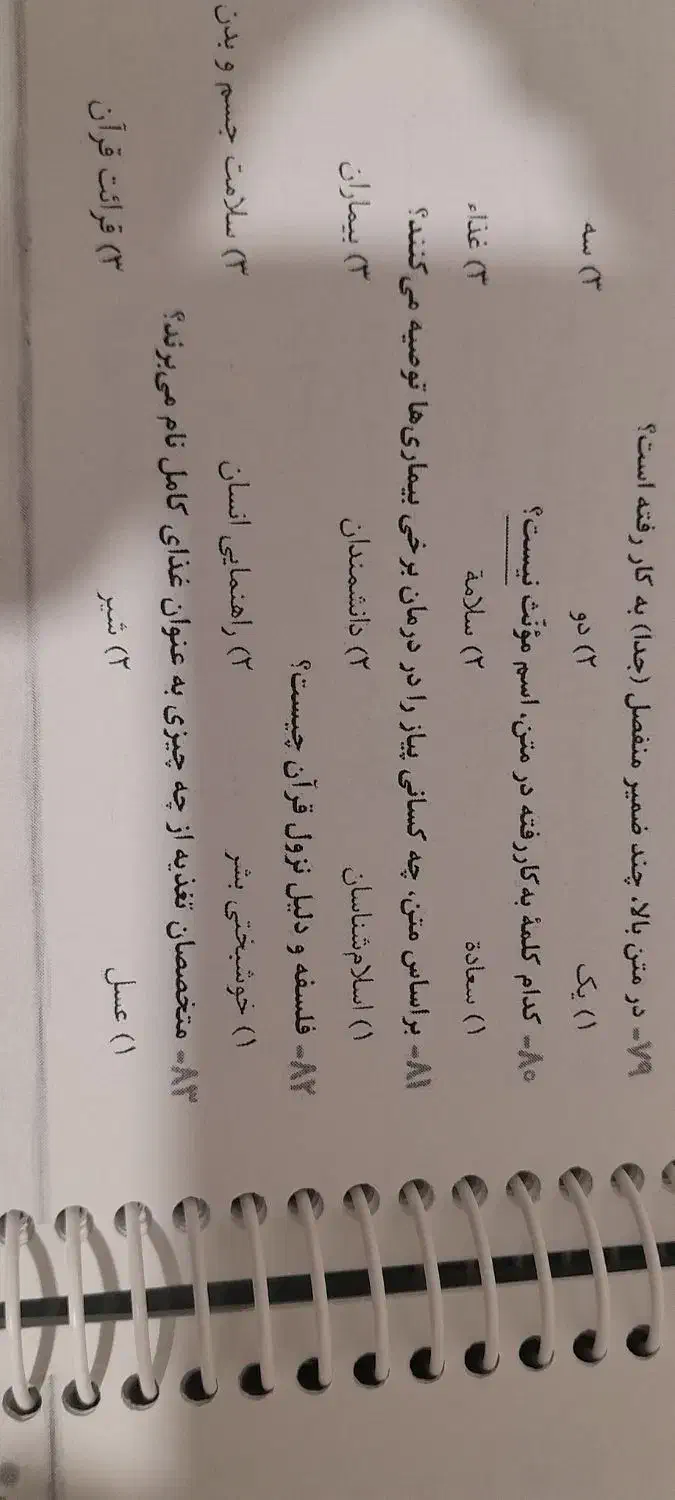 ۷۹- در متن بالا، چند ضمیر منفصل (جدا) به کار رفته است؟
۱) یک ۲) دو ۳) سه
۸۰- کدام کلمهٔ به‌کاررفته در متن، اسم مؤنّث نیست؟
۱) سعادة ۲) سلامة ۳) غذاء
۸۱- براساس متن، چه کسانی پیاز را در درمان برخی بیماری‌ها توصیه می‌کنند؟
۱) اسلام‌شناسان ۲) دانشمندان ۳) بیماران
۸۲- فلسفه و دلیل نزول قرآن چیست؟
۱) خوشبختی بشر ۲) راهنمایی انسان ۳) سلامت جسم و بدن
۸۳- متخصصان تغذیه از چه چیزی به عنوان غذای کامل نام می‌برند؟
۱) عسل ۲) شیر ۳) قرائت قرآن